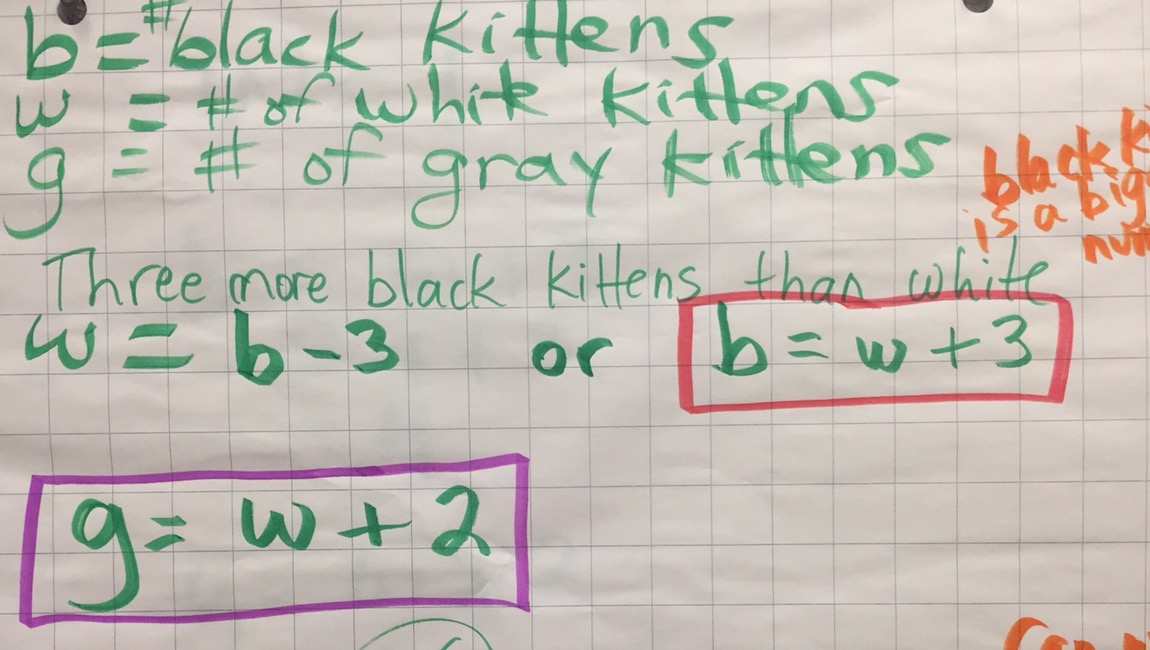 b = # black kittens
w = # of white kittens
g = # of gray kittens
black
is a big
Three more black kittens than white
w = b - 3 or b = w + 3
g = w + 2